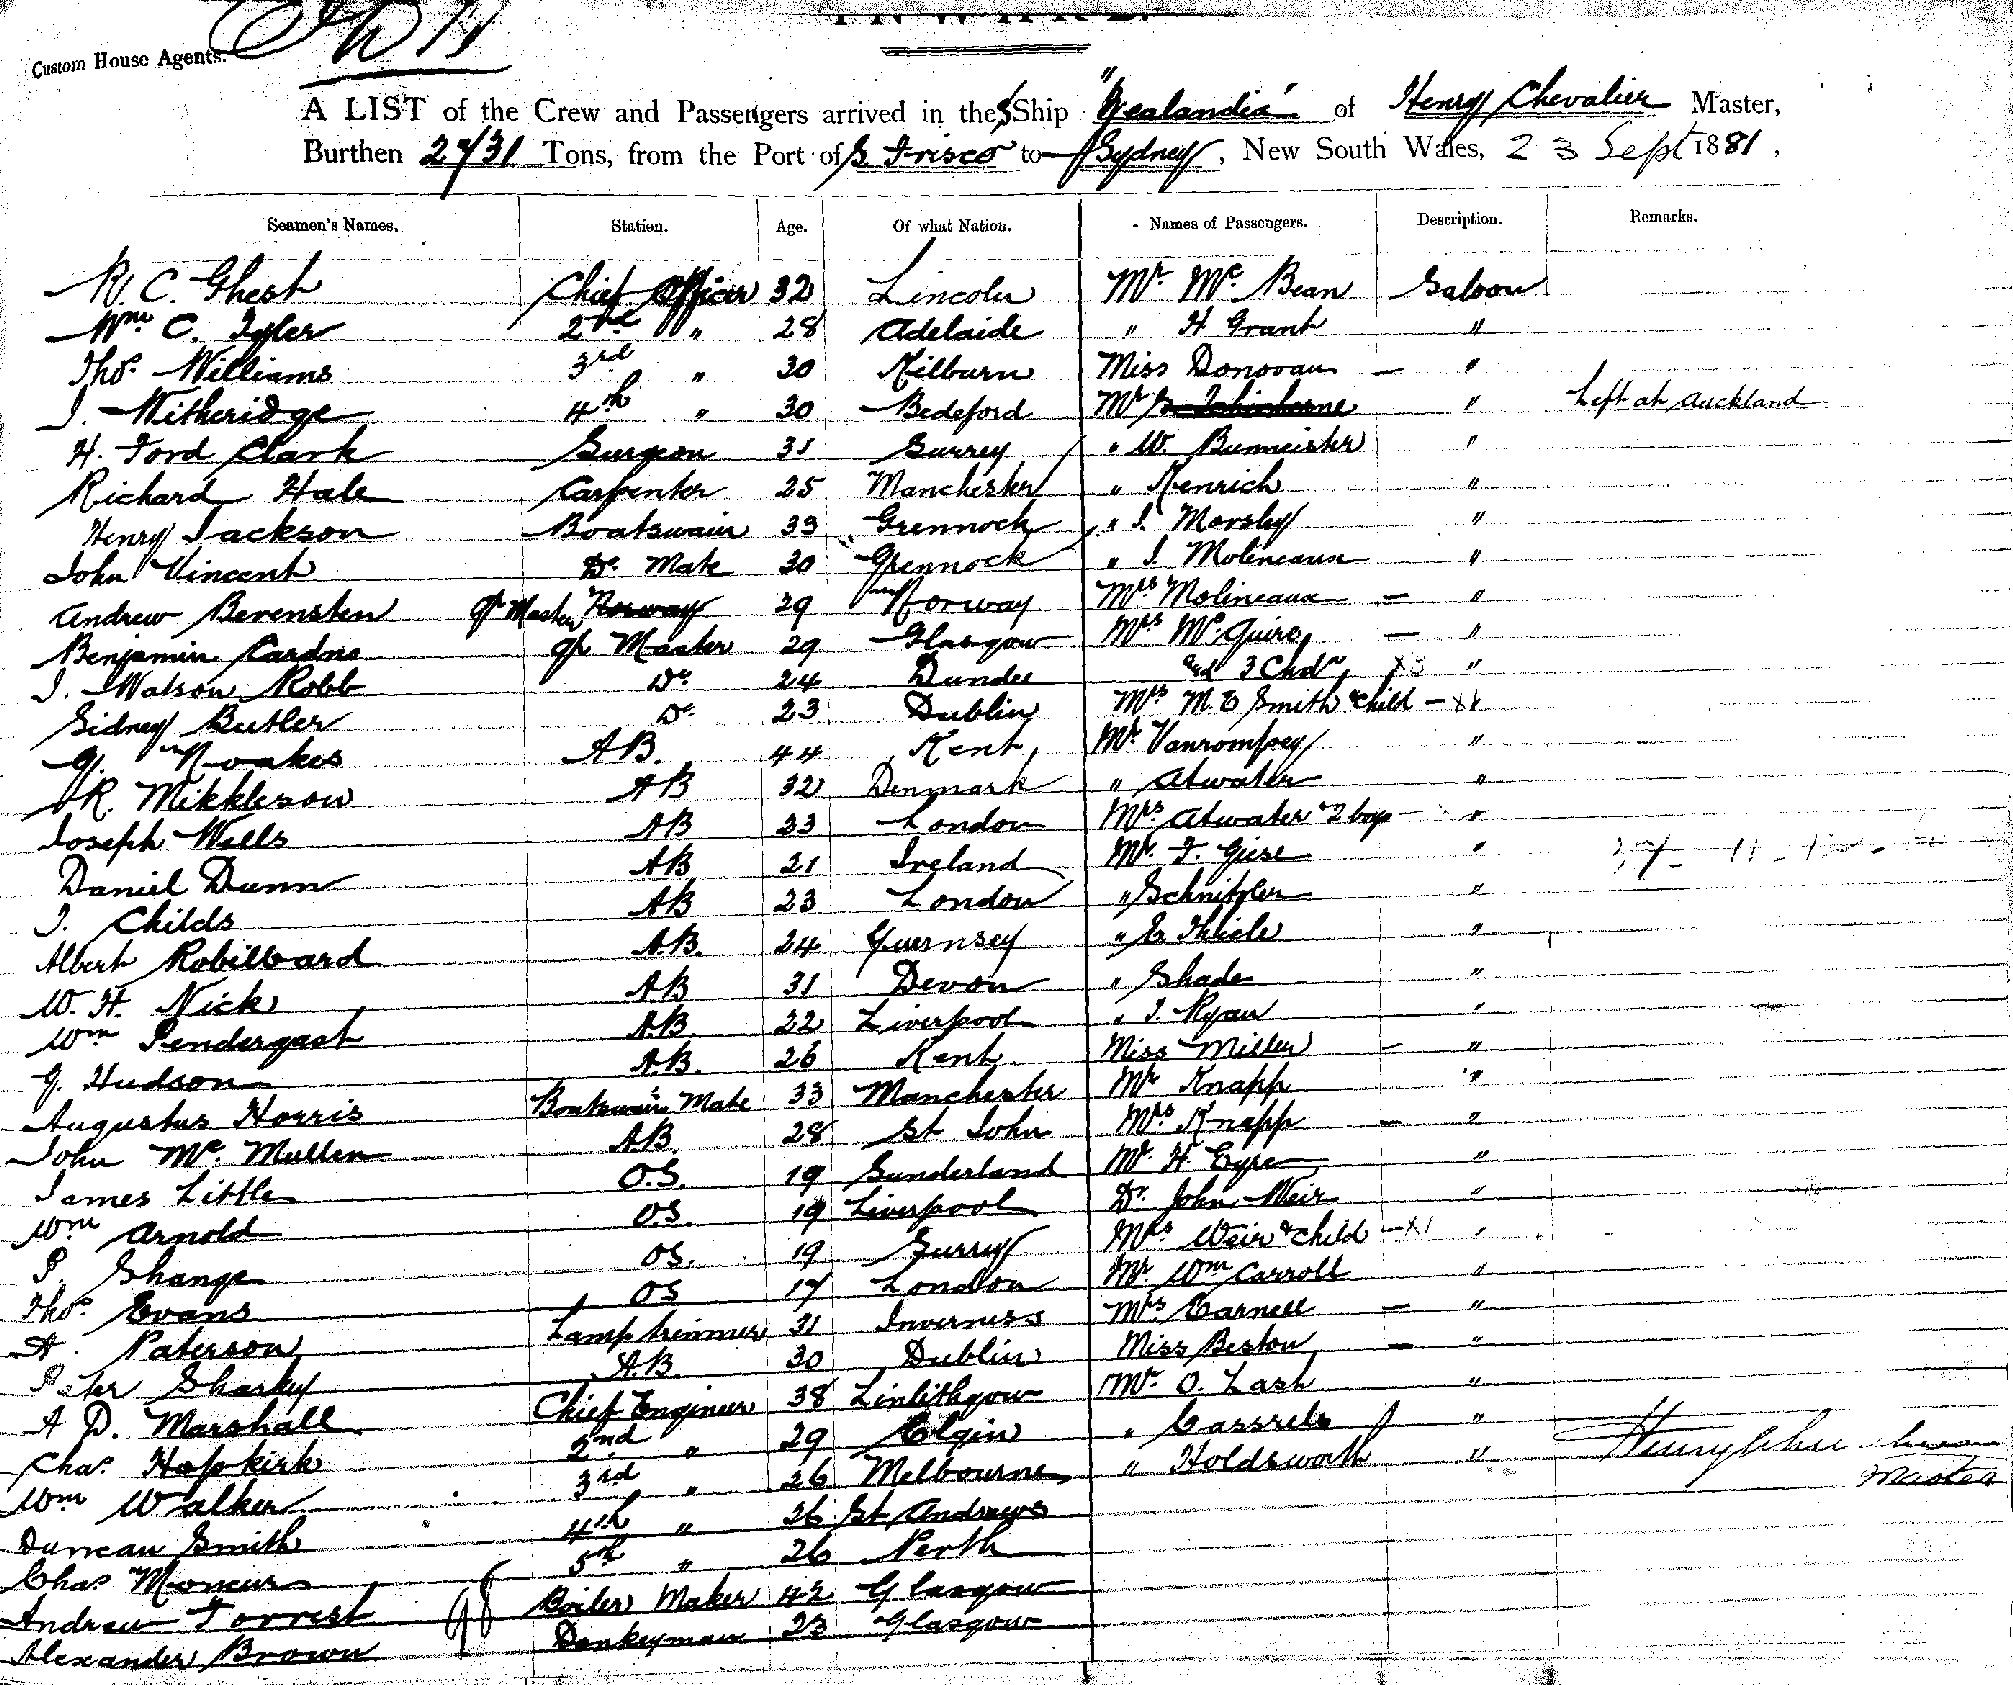 INWARD.
Custom House Agents.
A LIST of the Crew and Passengers arrived in the S Ship "Zealandia" of Henry Chevalier Master,
Burthen 2731 Tons, from the Port of S Frisco to Sydney, New South Wales, 23 Sept 1881.
Seamen's Names. Station. Age. Of what Nation. Names of Passengers. Description. Remarks.
R. C. Ghest Chief Officer 32 Lincoln Mr Mc Bean Saloon
Wm C. Tyler 2nd " 28 Adelaide " H Grant "
Thos Williams 3rd " 30 Kilburn Miss Donovan — "
J. Witheridge 4th " 30 Bedeford Mr "  Left at Auckland
H. Ford Clark Surgeon 31 Surrey " W. Burmeister "
Richard Hale Carpenter 25 Manchester " Kenrich "
Henry Jackson Boatswain 33 Grennock " J. Morsby "
John Vincent Do Mate 30 Grennock " J. Molineaux "
Andrew Berensten Qr Master Norway 29 Norway Mrs Molineaux — "
Benjamin Cardno Qr Master 29 Glasgow Mrs McGuire, — "
J. Watson Robb Do 24 Dundee and 3 Chdn X3 "
Sidney Butler Do 23 Dublin Mrs M E Smith & Child — X1
G. Noakes A B. 44 Kent Mr Vanrompey "
R. Mikkleson A B 32 Denmark " Atwater "
Joseph Wells A B 23 London Mrs Atwater & 2 boys — "
Daniel Dunn A B 21 Ireland Mr F. Giese "
J. Childs A B 23 London " Schnitzler "
Albert Robilliard A B. 24 Guernsey " E Thiele "
W. H. Nick A B 31 Devon " Shade "
Wm Pendergast A B. 22 Liverpool " J. Ryan "
G. Hudson A B. 26 Kent Miss Miller — "
Augustus Horris Boatswain's Mate 33 Manchester Mr Knapp "
John Mc Mullen A B. 28 St John Mrs Knapp — "
James Little O.S. 19 Sunderland Mr H Eyre "
Wm Arnold O.S. 19 Liverpool Dr John Weir "
P. Shange O S. 19 Surrey Mrs Weir & Child — X1 "
Thos Evans O S 17 London Mr Wm Carroll "
A. Paterson Lamp trimmer 31 Inverness Mrs Carnell — "
Peter Sharky A.B. 30 Dublin Miss Beston — "
A D. Marshall Chief Engineer 38 Linlithgow Mr O. Lash "
Chas Hopkirk 2nd " 29 Elgin " Cassrels "
Wm Walker 3rd " 26 Melbourne " Holdsworth " Henry Chevalier Master
Duncan Smith 4th " 26 St Andrews
Chas Moncur 5th " 26 Perth
Andrew Forrest Boiler Maker 42 Glasgow
Alexander Brown 98 Donkeyman 23 Glasgow